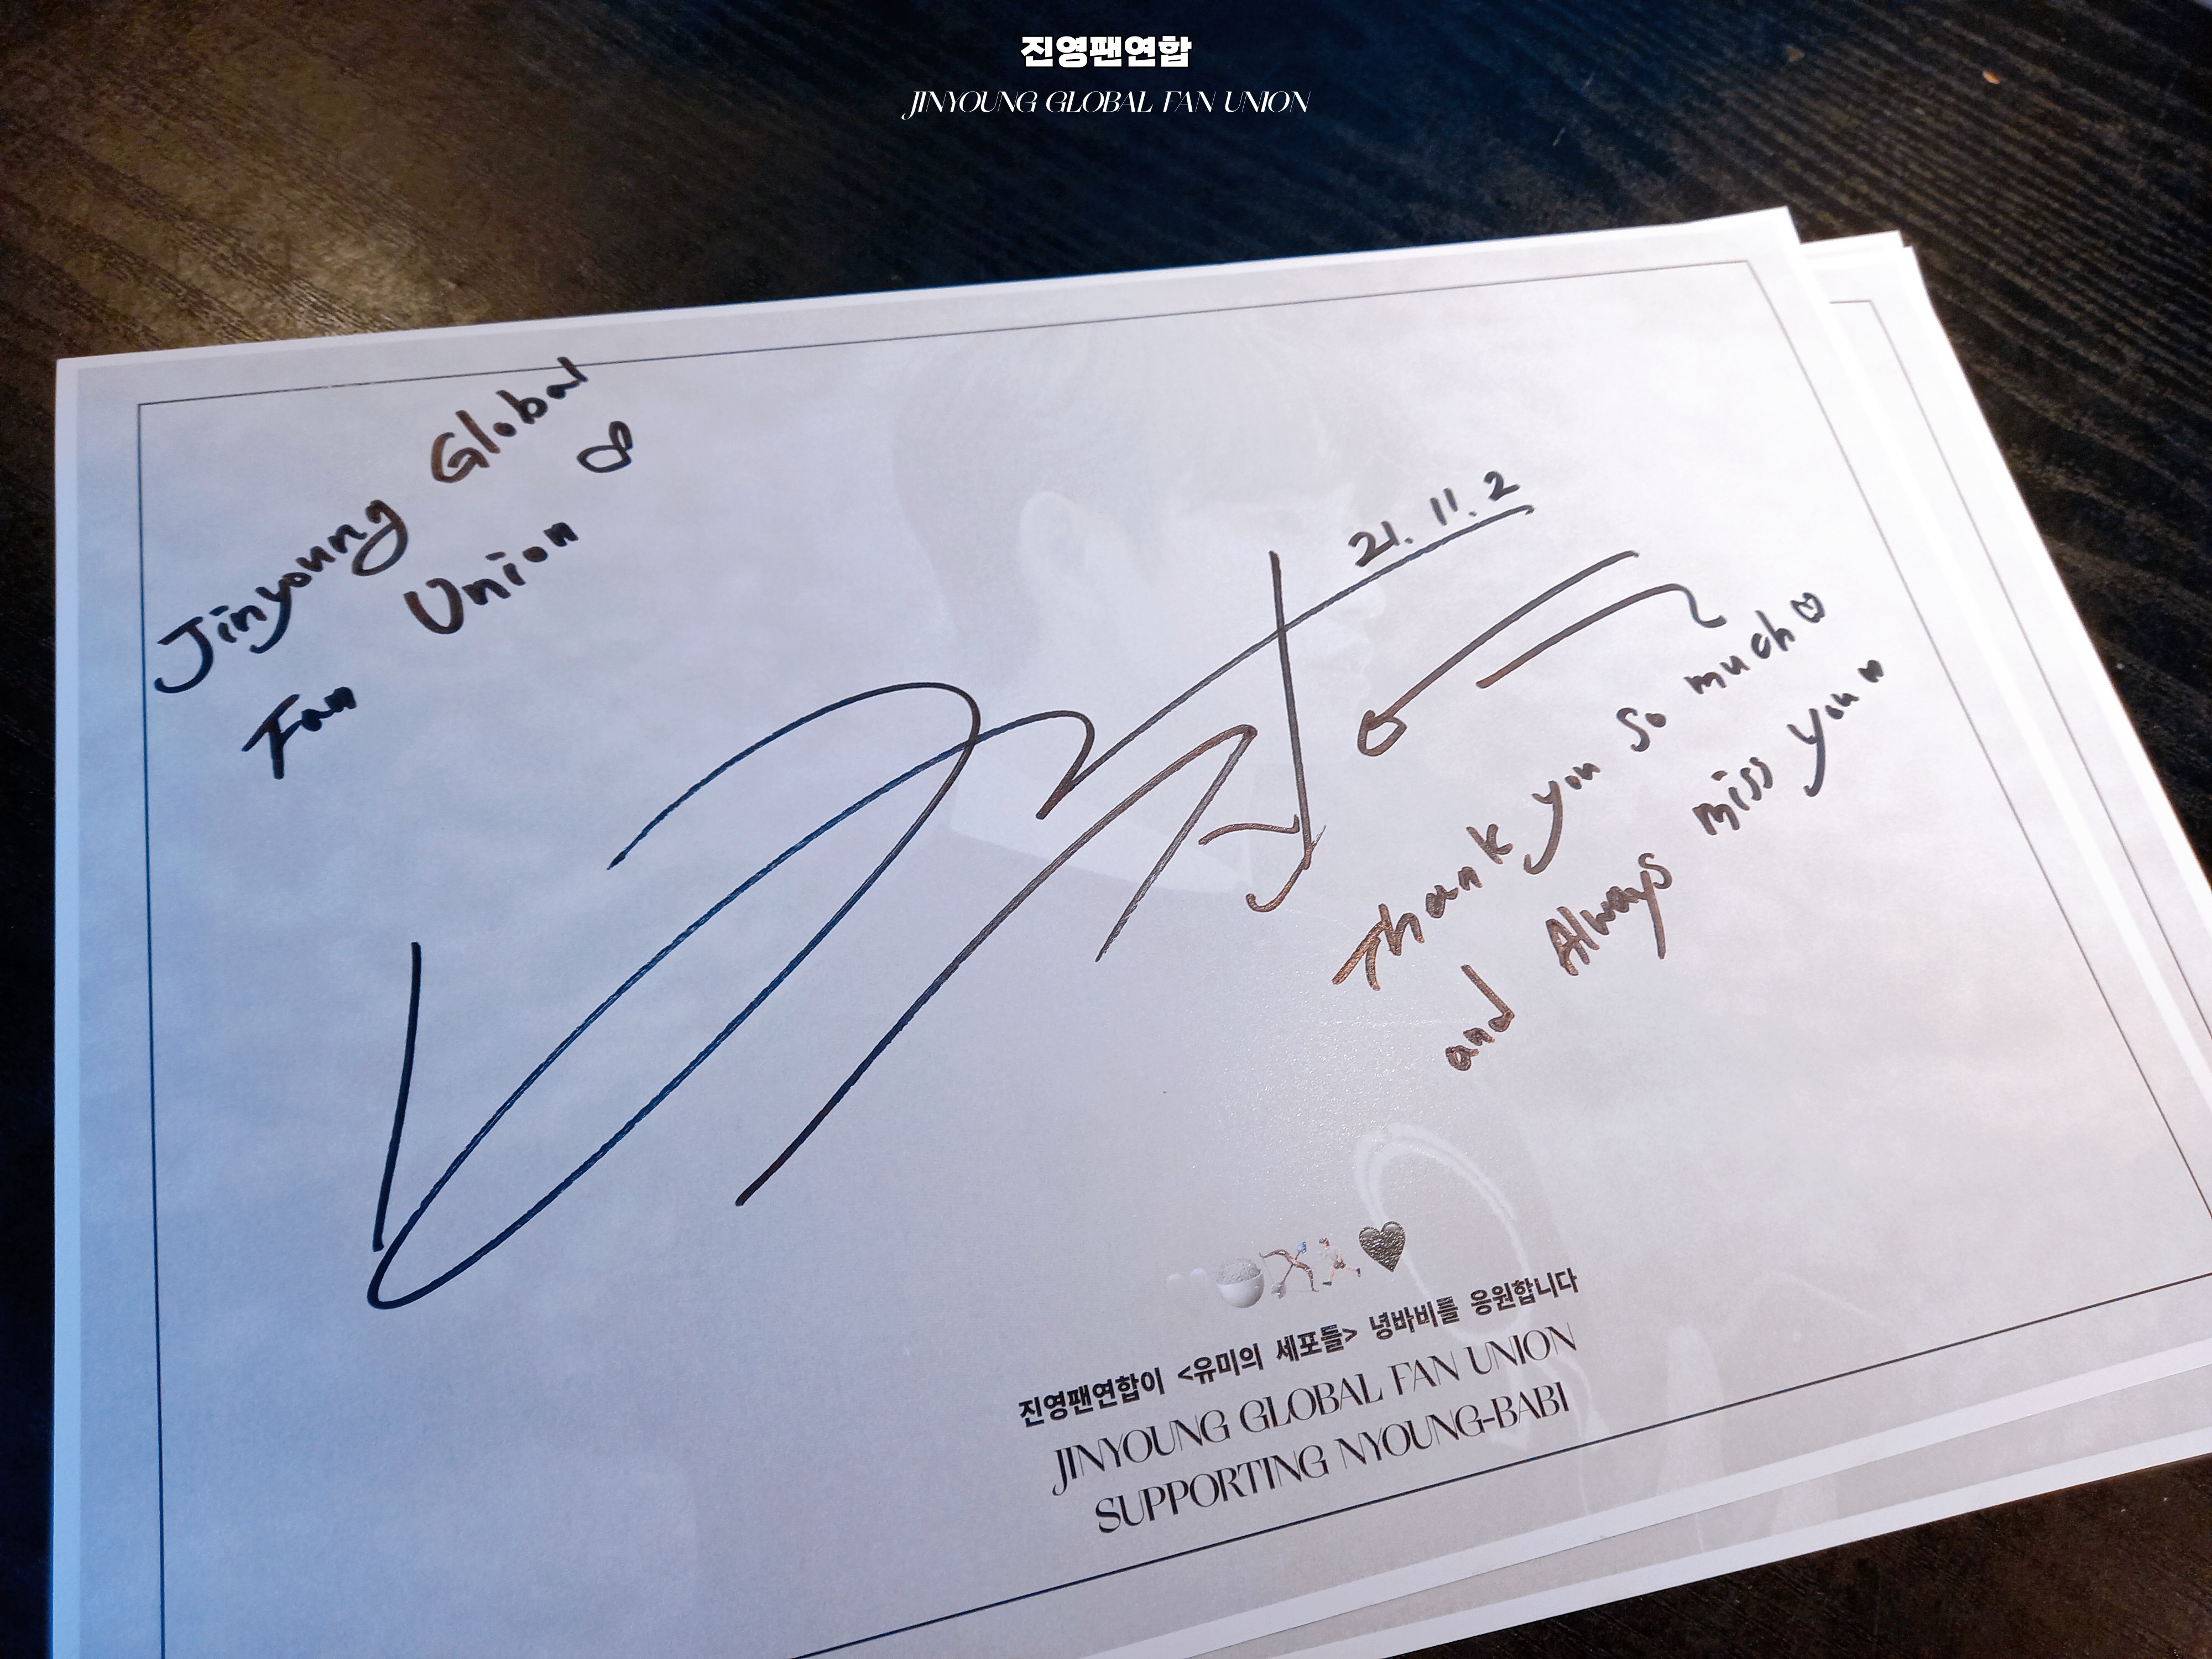 진영팬연합
JINYOUNG GLOBAL FAN UNION
Jinyoung Global
Fan Union
21. 11. 2
Thank you so much
and Always miss you
진영팬연합이 <유미의 세포들> 녕바비를 응원합니다
JINYOUNG GLOBAL FAN UNION
SUPPORTING NYOUNG-BABI